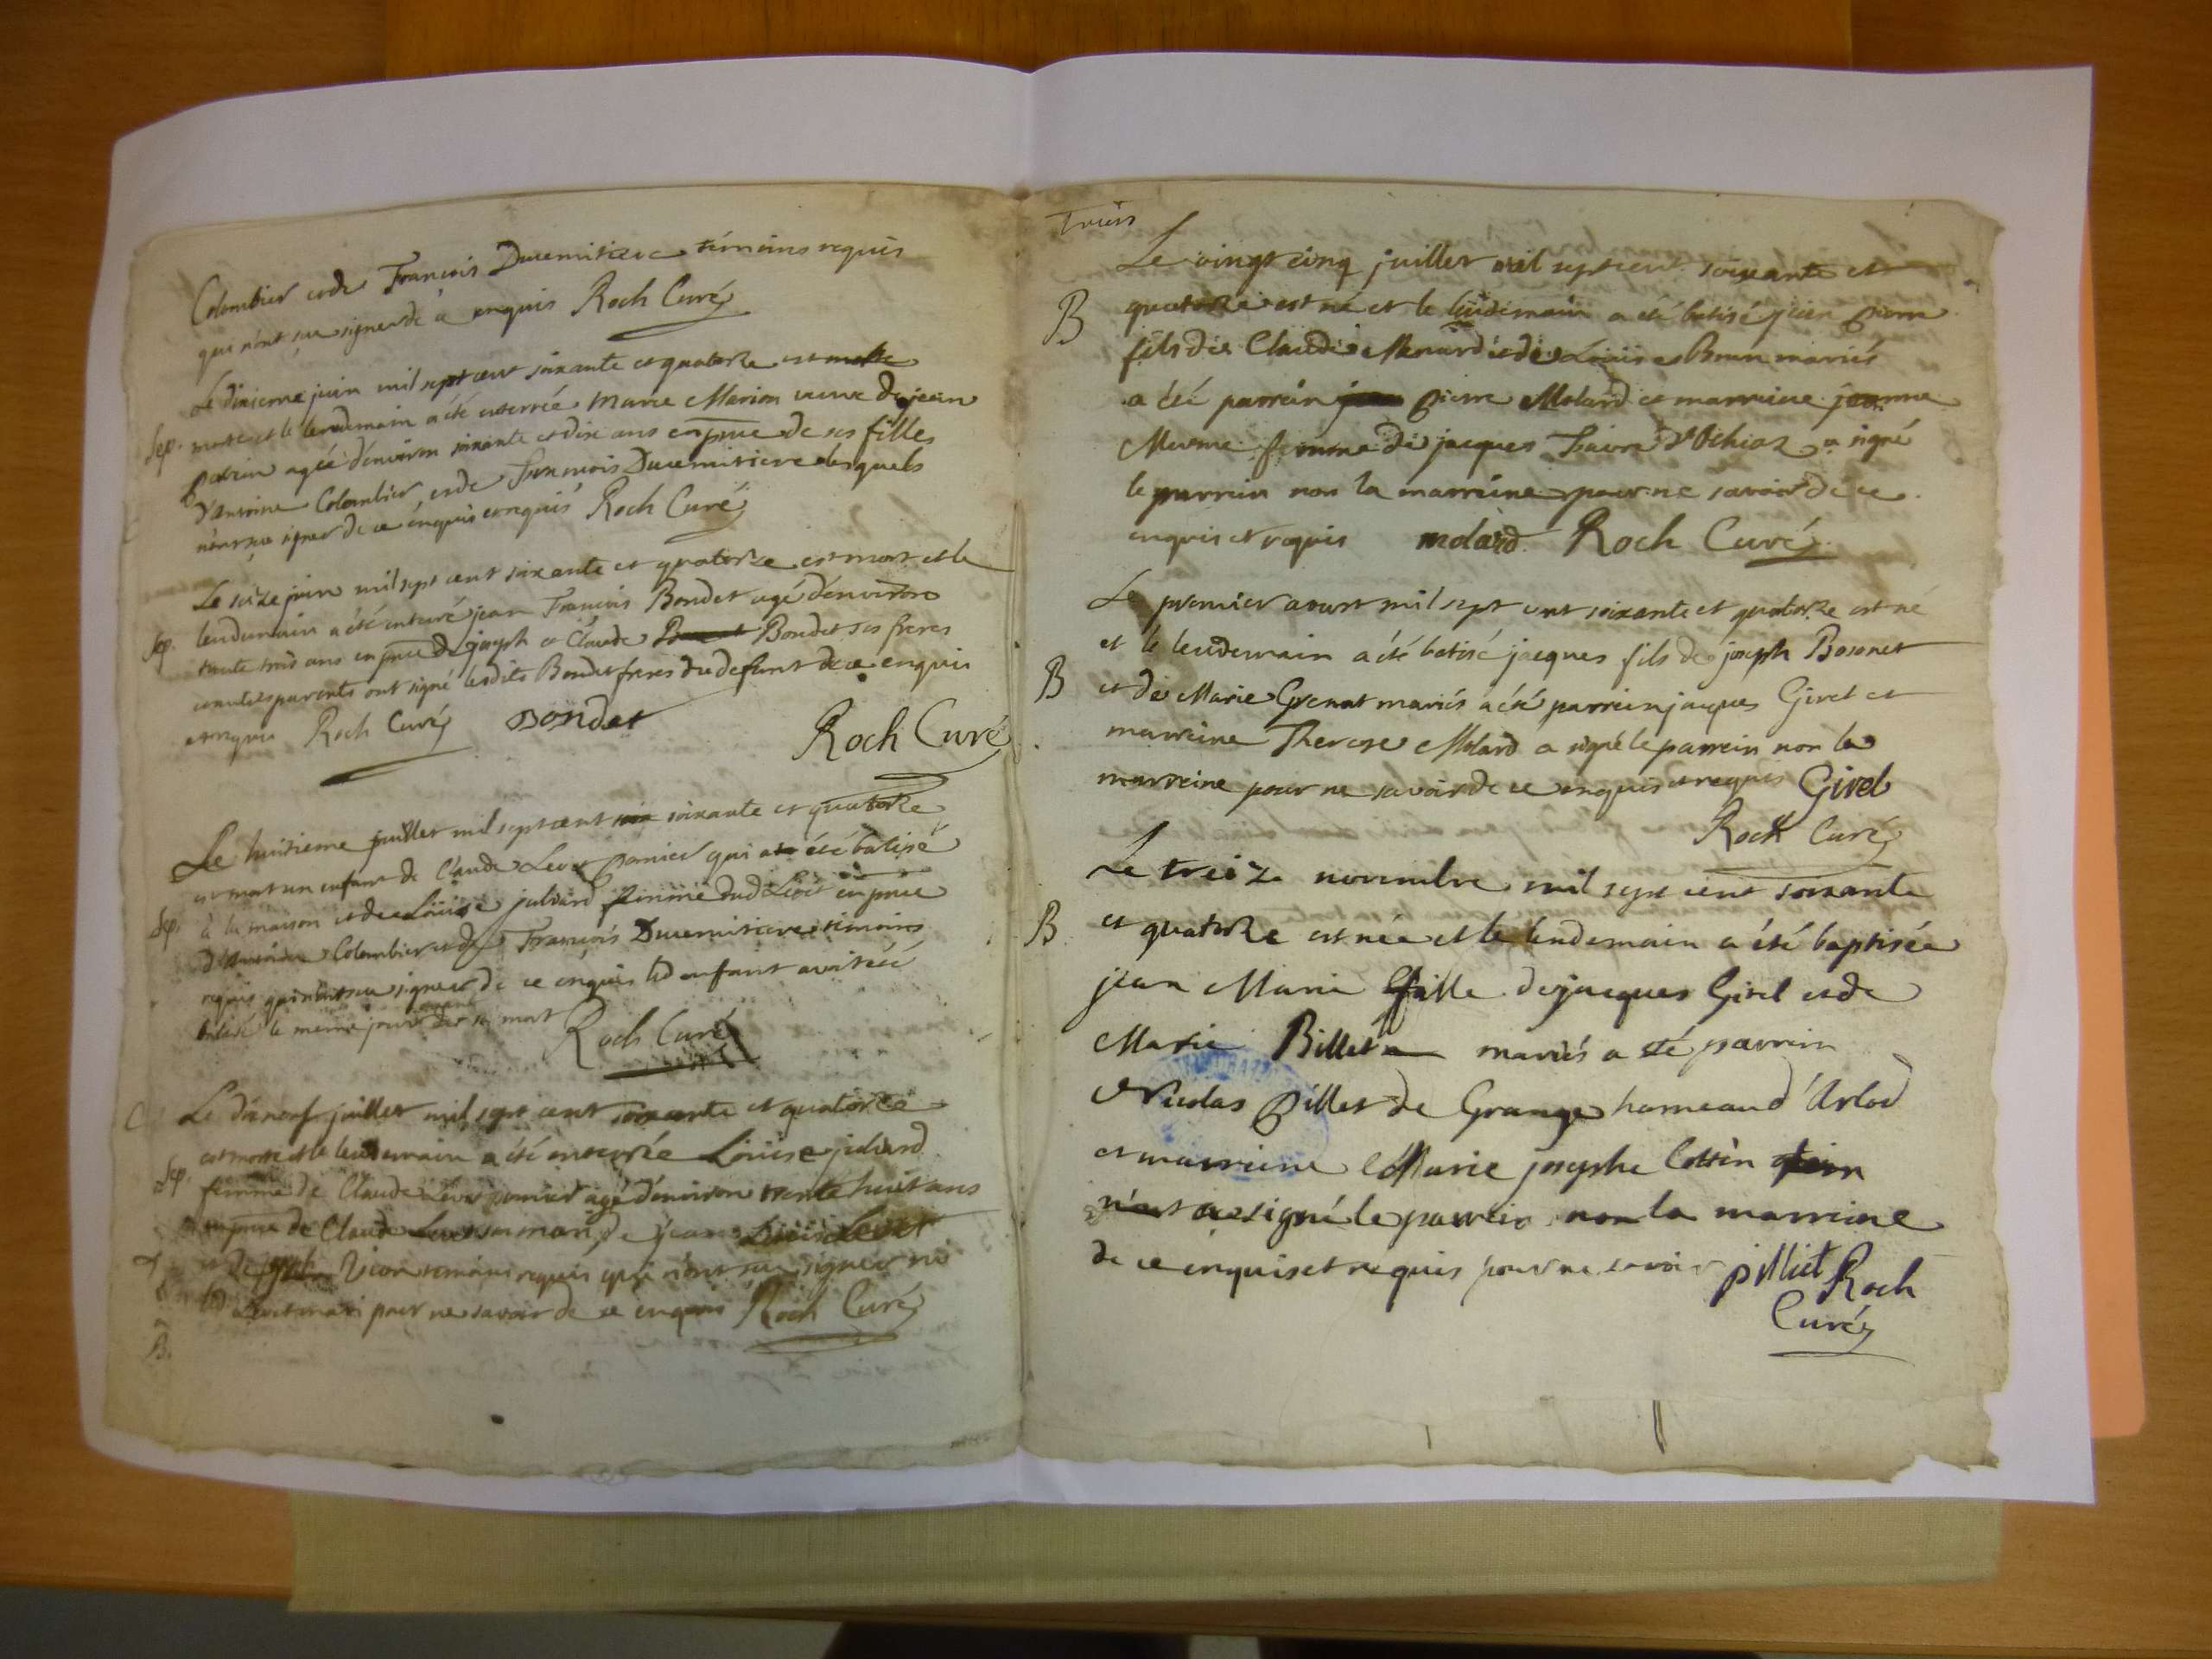 Colombier et de François Ducimitiere témoins requis
qui n'ont sçu signer de ce enquis Roch Curé
Le dixieme juin mil sept cent soixante et quatorze est morte
Sep. et le lendemain a été enterrée Marie Marion veuve de jean
agée d'environ soixante et dix ans en pnce de ses filles
d'Antoine Colombier et de François Ducimitiere lesquels
n'ont sçu signer de ce enquis et requis Roch Curé
Le seize juin mil sept cent soixante et quatorze est mort et le
Sep. lendemain a été enterré jean François Bondet agé d'environ
trente trois ans en pnce de joseph et Claude Bondet ses freres
parents ont signé lesdits Bondet freres du defunt de ce enquis
et requis Roch Curé Bondet
Roch Curé
Le huitieme juillet mil sept cent soixante et quatorze
est mort un enfant de Claude Levet qui a été batisé
Sep. à la maison et de Loüise julliard femme dud Levet en pnce
d'Antoine Colombier et de François Ducimitiere témoins
requis qui n'ont sçu signer de ce enquis led enfant avoit été
batisé le meme jour avant sa mort
Roch Curé
C
Le dix neuf juillet mil sept cent soixante et quatorze
est morte et le lendemain a été enterrée Loüise juliard
Sep. femme de Claude Levet agé d'environ trente huit ans
en pnce de Claude Levet son mari, de jean Loüis Levet
et de témoins requis qui n'ont sçu signer ni
led Levet mari pour ne savoir de ce enquis Roch Curé
B.
Trois
Le vingt cinq juillet mil sept cent soixante et
B quatorze est né et le lendemain a été batisé jean pierre
fils de Claude Menard et de Loüise Brun mariés
a été parrein pierre Molard et marreine jeanne
femme de jacques Favre d'Ochiaz a signé
le parrein non la marreine pour ne savoir de ce
enquis et requis molard Roch Curé
Le premier aoust mil sept cent soixante et quatorze est né
et le lendemain a été batisé jacques fils de joseph Bosonet
B et de Marie Grenat mariés a été parrein jacques Girel et
marreine Therese Molard a signé le parrein non la
marreine pour ne savoir de ce enquis et requis Girel
Roch Curé
Le treize novembre mil sept cent soixante
B et quatorze est née et le lendemain a été baptisée
jean Marie fille de jacques Girel et de
Marie Billet mariés a été parrein
Nicolas pillet de Grange hameau d'Arlod
et marreine Marie josephe Cottin
a signé le parrein non la marreine
de ce enquis et requis pour ne savoir pilliet Roch
Curé